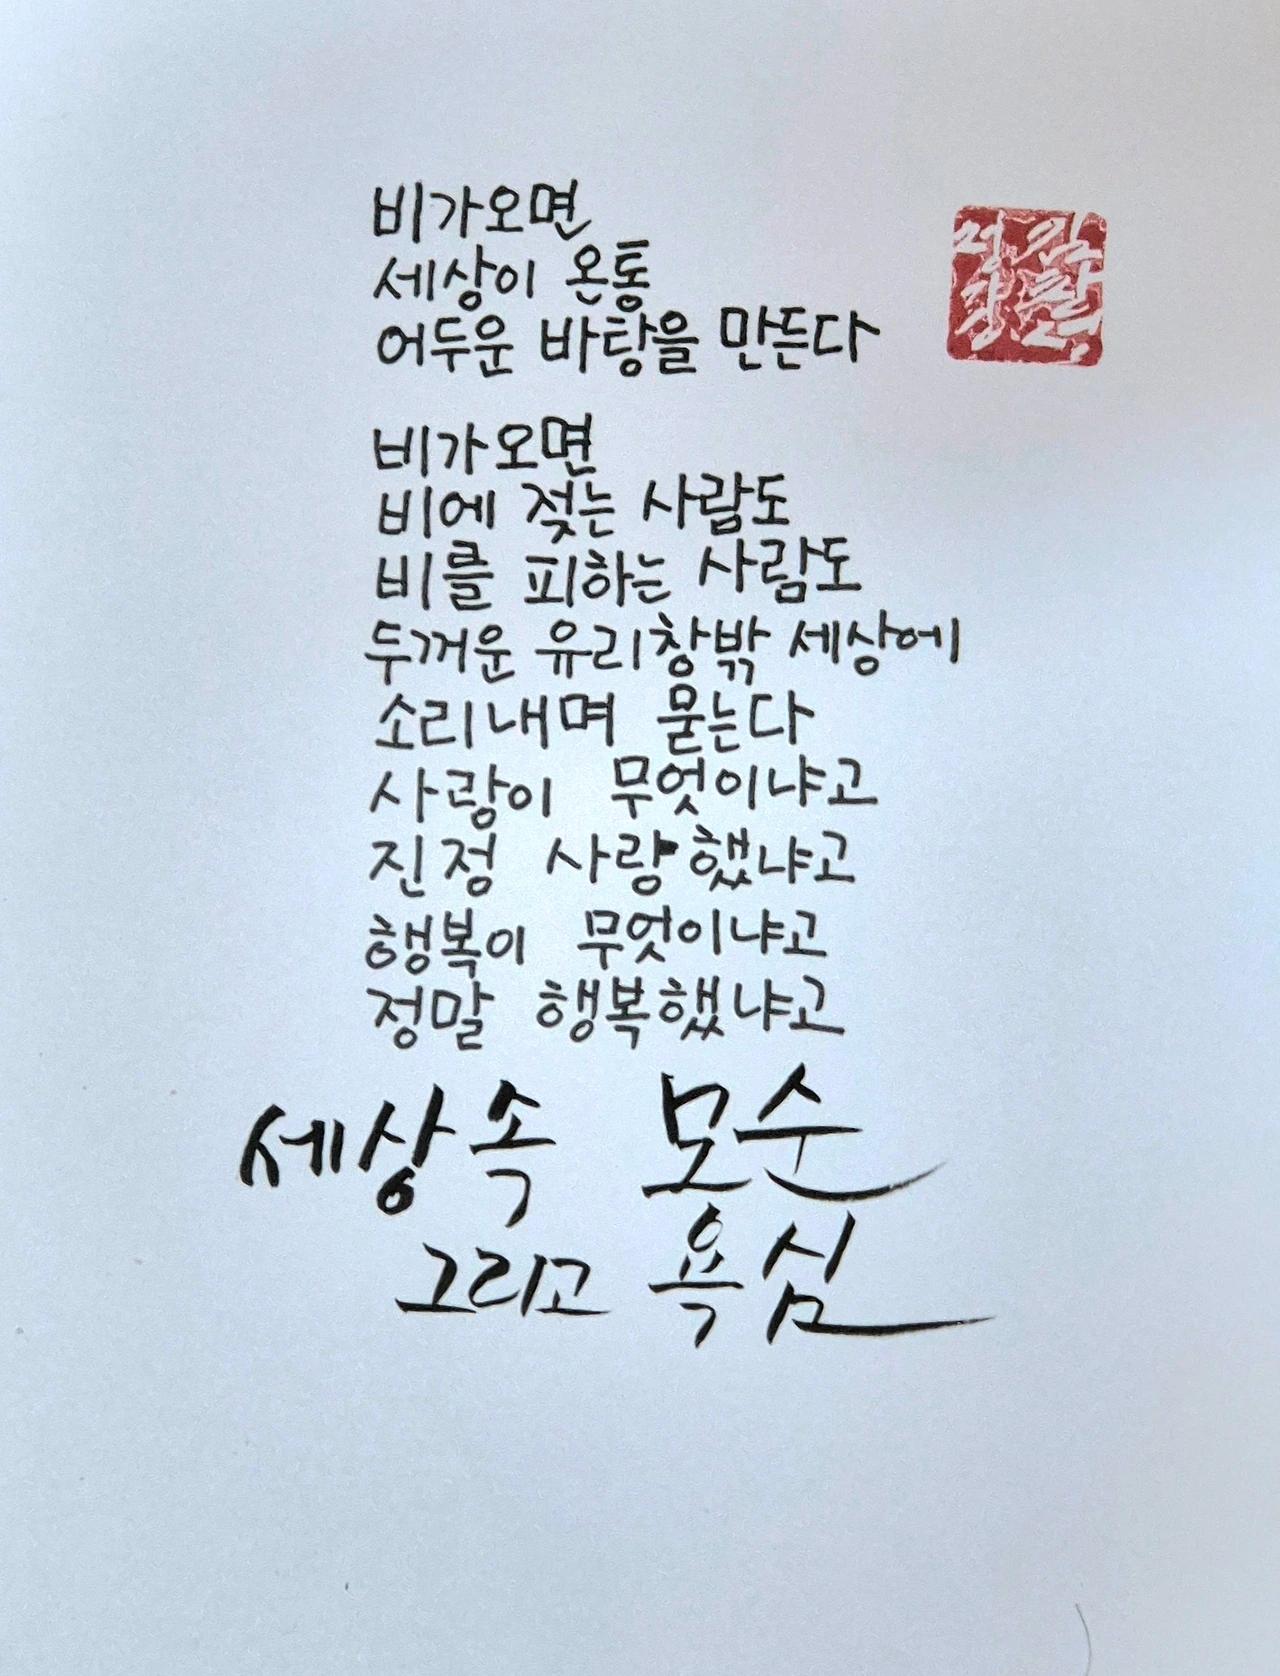 비가오면
세상이 온통
어두운 바탕을 만든다
비가오면
비에 젖는 사람도
비를 피하는 사람도
두꺼운 유리창밖 세상에
소리내며 묻는다
사랑이 무엇이냐고
진정 사랑했냐고
행복이 무엇이냐고
정말 행복했냐고
세상속 모순
그리고 욕심